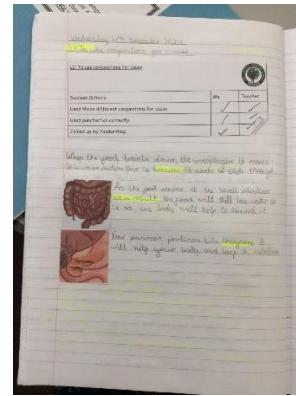 Wednesday 11th December
LO: To use conjunctions for cause
LO: To use conjunctions for cause
Success Criteria Me Teacher
Used three different conjunctions for cause
Used punctuation correctly
Joined up my handwriting
When the food travels down the oesophagus it moves
in a wave motion this is because it needs to slide through
As the food arrives at the small intestine
as a result the food will still lose water it
is so our body will help to absorb it
Your pancreas produces bile it
will help your body and keep it